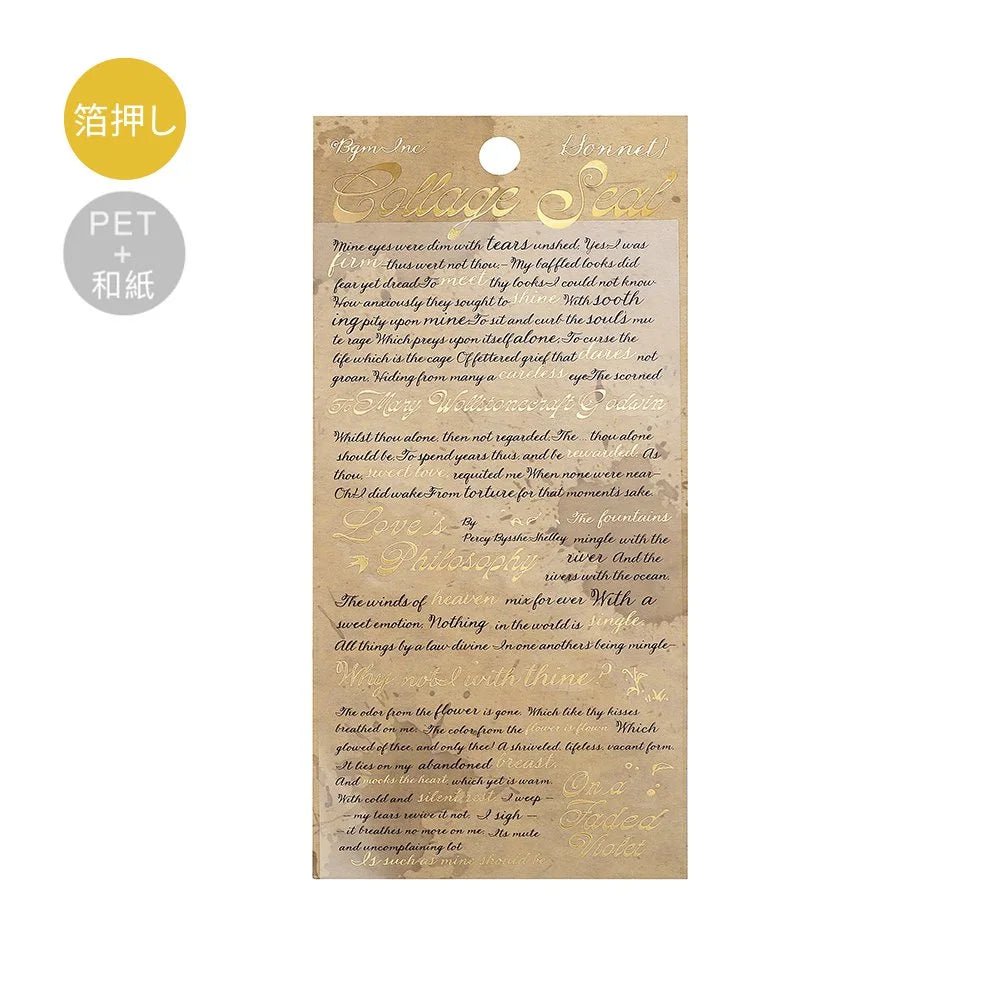 箔押し
PET
+
和紙
©Bgm Inc.
{Sonnet}
Collage Seal
Mine eyes were dim with tears unshed; Yes I was
firm—thus wert not thou;—My baffled looks did
fear yet dread To meet thy looks—I could not know
How anxiously they sought to shine With sooth
ing pity upon mine To sit and curb the souls mu
te rage Which preys upon itself alone; To curse the
life which is the cage Of fettered grief that dares not
groan, Hiding from many a careless eye The scorned
To Mary Wollstonecraft Godwin
Whilst thou alone, then not regarded, The ... thou alone
should be, To spend years thus, and be rewarded, As
thou, sweet love, requited me When none were near—
Oh! I did wake From torture for that moments sake.
Love's
Philosophy
By
Percy Bysshe Shelley
The fountains
mingle with the
river And the
rivers with the ocean,
The winds of heaven mix for ever With a
sweet emotion; Nothing in the world is single;
All things by a law divine In one anothers being mingle—
Why not I with thine?
The odor from the flower is gone, Which like thy kisses
breathed on me; The color from the flower is flown Which
glowed of thee, and only thee! A shriveled, lifeless, vacant form,
It lies on my abandoned breast,
And mocks the heart, which yet is warm,
With cold and silent rest. I weep—
—my tears revive it not; I sigh—
—it breathes no more on me; Its mute
and uncomplaining lot
Is such as mine should be.
On a
Faded
Violet